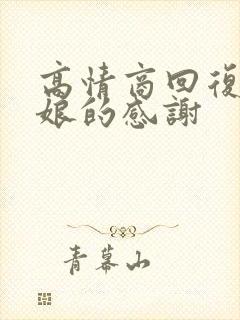 高情商回復
娘的感謝
青幕山